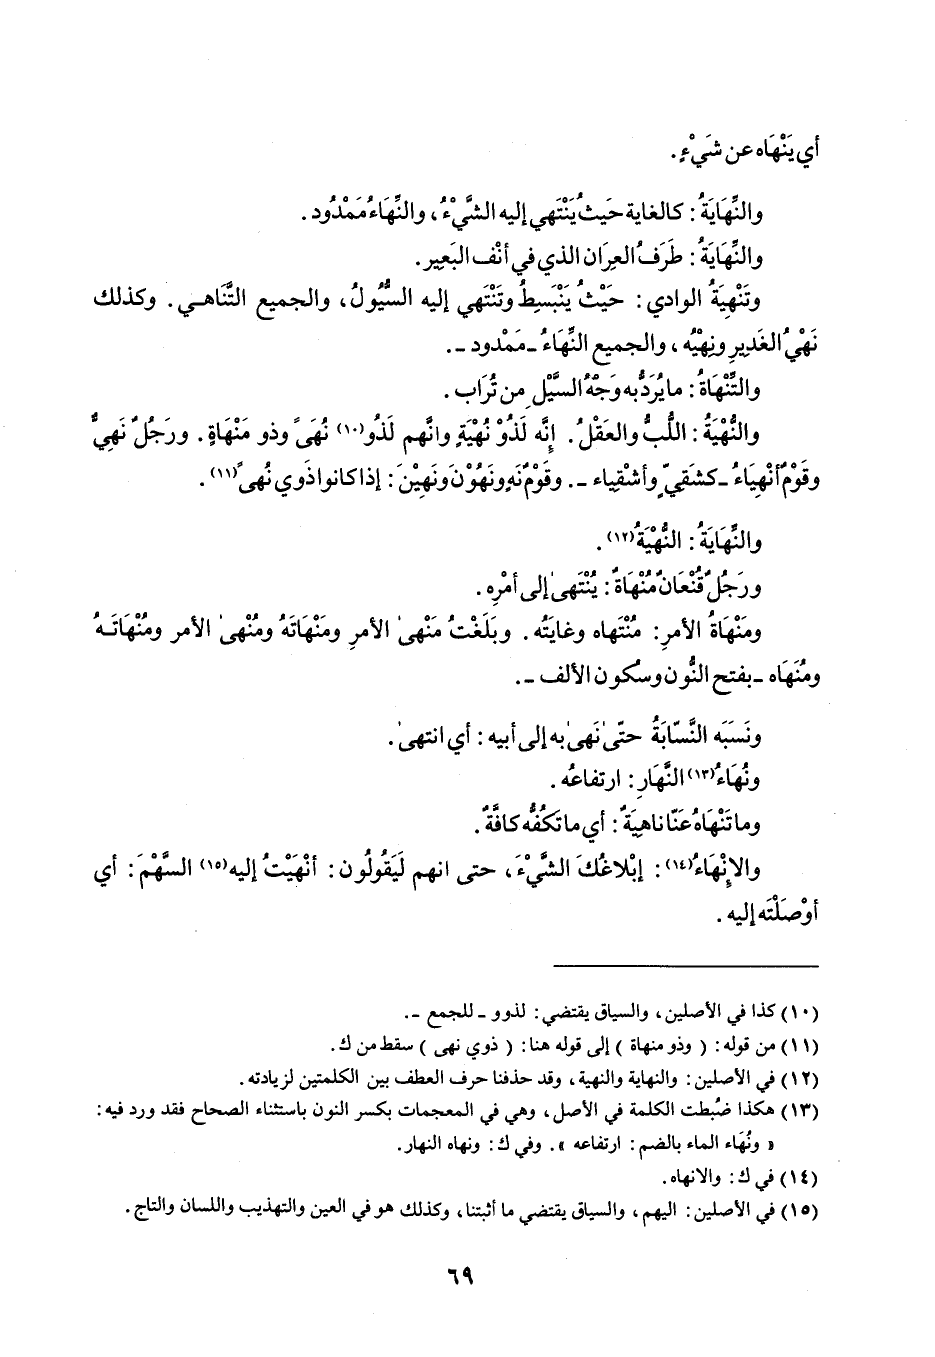 أي يَنْهَاه عن شَيْءٍ.
والنِّهَايَةُ: كالغاية حَيثُ يَنْتَهي إليه الشَّيْءُ، والنِّهَاءُ مَمْدُود.
والنِّهَايَةُ: طَرَفُ العِرَان الذي في أنْف البَعِير.
وتَنْهِيَةُ الوادي: حَيْثُ يَنْبَسِطُ وتَنْتَهي إليه السُّيُولُ، والجميع التَّناهي. وكذلك
نَهْيُ الغَدِيرِ ونِهْيُه، والجميع النِّهَاءُ ـ مَمْدود ـ.
والتِّنْهَاةُ: ما يُرَدُّ به وَجْهُ السَّيْلِ من تُرَاب.
والنُّهْيَةُ: اللُّبُّ والعَقْلُ. إنَّه لَذُوْ نُهْيَةٍ وانَّهم لَذُو(١٠) نُهَىً وذو مَنْهَاةٍ. ورَجُلٌ نَهِيٌّ
وقَوْمٌ أنْهِيَاءُ ـ كشَقِيٍّ وأشْقِياء ـ. وقَوْمٌ نَهٍ ونَهُوْنَ ونَهِيْنَ: إذا كانوا ذَوي نُهىً(١١).
والنِّهَايَةُ: النُّهْيَةُ(١٢).
ورَجُلٌ قُنْعَانٌ مُنْهَاةٌ: يُنْتَهىٰ إلى أمْرِه.
ومَنْهَاةُ الأمرِ: مُنْتَهاه وغايَتُه. وبَلَغْتُ مَنْهىٰ الأمرِ ومَنْهَاتَهُ ومُنْهىٰ الأمر ومُنْهَاتَهُ
ومُنَهَاه ـ بفتح النُّون وسُكون الألف ـ.
ونَسَبَه النَّسّابَةُ حتّىٰ نَهىٰ به إلى أبيه: أي انتهىٰ.
ونُهَاءُ(١٣) النَّهَارِ: ارتفاعُه.
وما تَنْهَاهُ عَنّا ناهِيَةٌ: أي ما تَكُفُّه كافَّةٌ.
والإِنْهَاءُ(١٤): إبْلاغُكَ الشَّيْءَ، حتى انهم لَيَقُولُون: أنْهَيْتُ إليه(١٥) السَّهْمَ: أي
أوْصَلْتَه إليه.
(١٠) كذا في الأصلين، والسياق يقتضي: لذوو ـ للجمع ـ.
(١١) من قوله: ( وذو منهاة ) إلى قوله هنا: ( ذوي نهى ) سقط من ك.
(١٢) في الأصلين: والنهاية والنهية، وقد حذفنا حرف العطف بين الكلمتين لزيادته.
(١٣) هكذا ضُبطت الكلمة في الأصل، وهي في المعجمات بكسر النون باستثناء الصحاح فقد ورد فيه:
« ونُهَاء الماء بالضم: ارتفاعه ». وفي ك: ونهاه النهار.
(١٤) في ك: والانهاه.
(١٥) في الأصلين: اليهم، والسياق يقتضي ما أثبتنا، وكذلك هو في العين والتهذيب واللسان والتاج.
٦٩